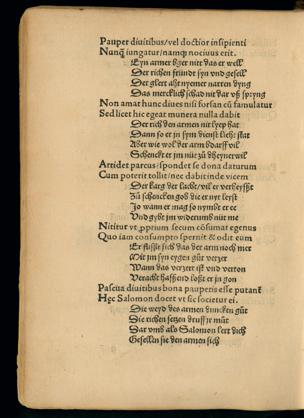 Pauper diuitibus/vel doctior insipienti
Nunq̃ iungatur/namq; nociuus erit.
Eyn armer hger nitt das er well
Der richen fründt syn vnd gesell
Der glert aht nyemer narren dyng
Das mercklich schad nit dar vß spryng
Non amat hunc diues nisi forsan cũ famulatur
Sed licet hic egeat munera nulla dabit
Der rich den armen nit lyep hat
Dann so er jn sym dienst
Aber wie wol der arm bdarff vil
Schenckt er jm nüt zů
Arridet parcus/spondet se dona daturum
Cum poterit tollit/nec dabit inde vicem
Der karg der lacht/vil er verheyßt
Zů schencken gob die er nyt leyst
Jo wann er mag so nymbt er e
Vnd gybt jm widerumb nüt me
Nititur vt ꝓprium secum cõsumat egenus
Quo iam consumpto spernit & odit eum
Er flißt sich das der arm noch mer
Mit jm syn eygen gůt verzer
Wann das verzert ist vnd verton
Veracht hassend loßt er jn gon
Pascua diuitibus bona pauperis esse putant
Hęc Salomon docet vt sic societur ei.
Die weyd des armen duncken gůt
Die richen setzen druff jr můt
Dar vmb als Salomon lert dich
Gesellen sie den armen sich